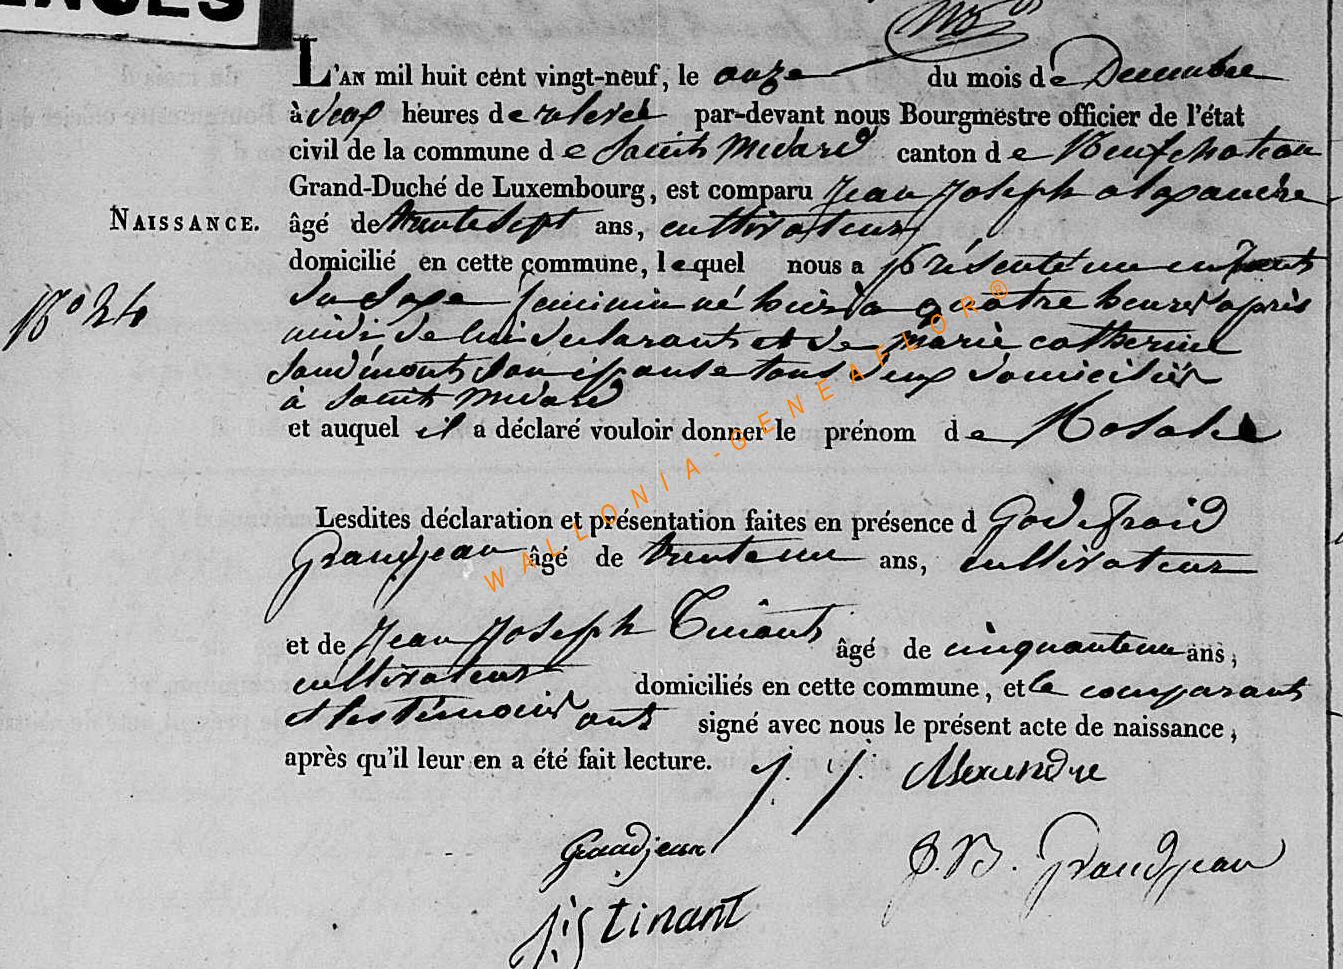 ENCES
L'AN mil huit cent vingt-neuf, le onze du mois de Decembre
à deux heures de relevée par-devant nous Bourgmestre officier de l'état
civil de la commune de Saint Médard canton de Neufchateau
Grand-Duché de Luxembourg, est comparu Jean Joseph alexandre
NAISSANCE. âgé de trente sept ans, cultivateur
domicilié en cette commune, lequel nous a présenté un enfant
N° 24 du sexe feminin né hier à quatre heures après
midi de lui declarant et de marie catherine
son épouse tous deux domiciliés
à Saint Médard
et auquel il a déclaré vouloir donner le prénom de Rosalie
Lesdites déclaration et présentation faites en présence d Godefroid
Grandjean âgé de trente un ans, cultivateur
et de Jean Joseph Tinant âgé de cinquante un ans,
cultivateur domiciliés en cette commune, et le comparant
et les témoins ont signé avec nous le présent acte de naissance,
après qu'il leur en a été fait lecture.
J. J. Alexandre
Grandjean
J. B. Grandjean
Tinant
WALLONIA-GENEAFLOR®